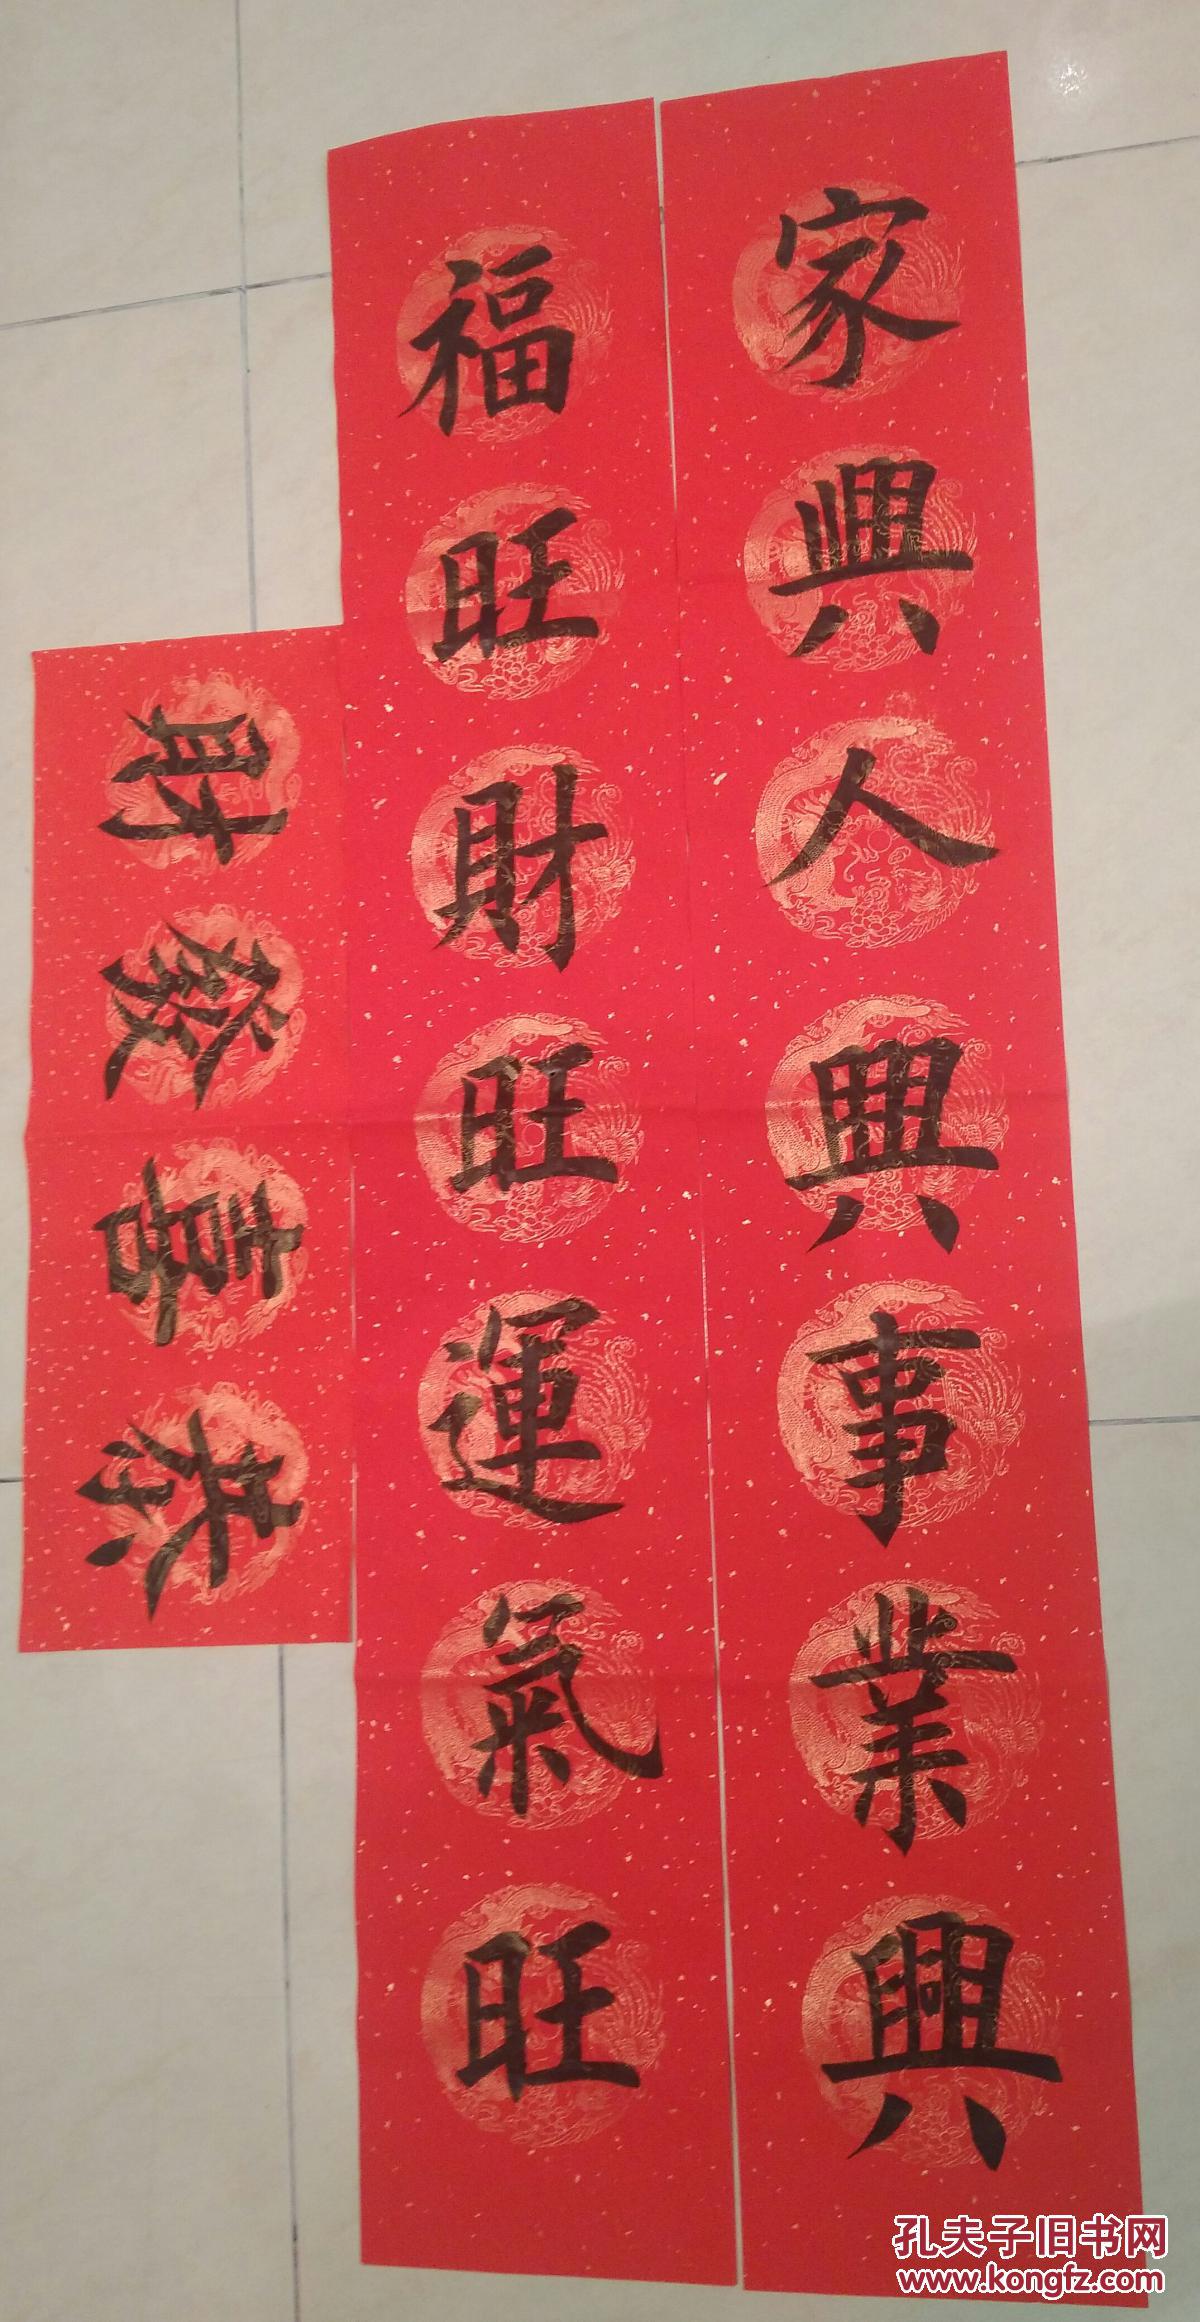 家興人興事業興
福旺財旺運氣旺
恭喜發財
孔夫子旧书网
www.kongfz.com